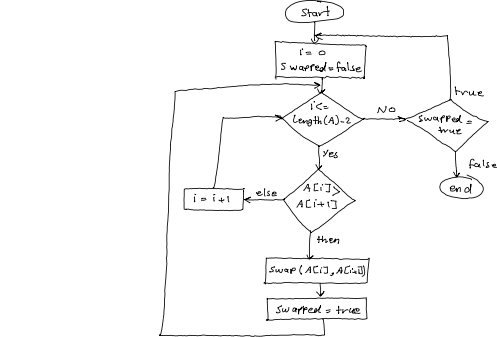 Start
i = 0
Swapped=false
i<=
length(A)-2
NO
swapped=
true
true
false
end
yes
A[i]>
A[i+1]
else
i = i+1
then
swap(A[i], A[i+1])
swapped = true